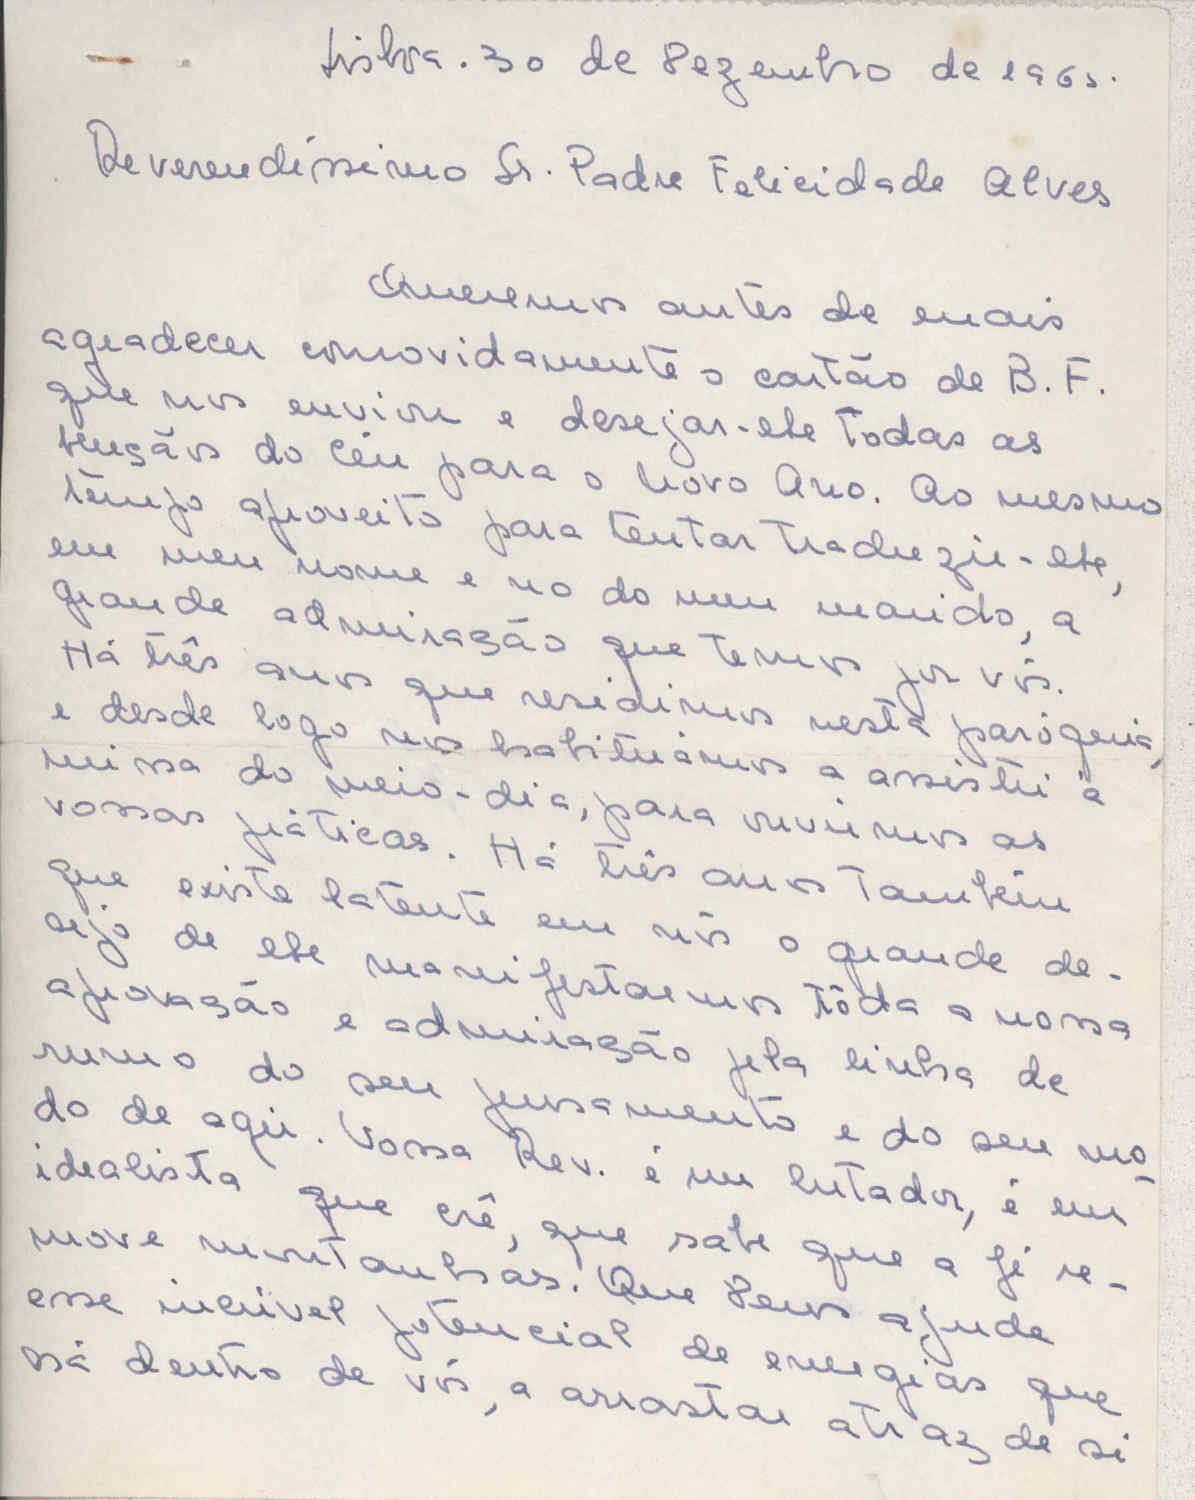 Lisboa. 30 de Dezembro de 196
Reverendíssimo Sr. Padre Felicidade Alves
Queremos antes de mais
agradecer comovidamente o cartão de B. F.
que nos enviou e desejar-lhe todas as
bençãos do Céu para o Novo Ano. Ao mesmo
tempo aproveito para tentar traduzir-lhe,
em meu nome e no do meu marido, a
grande admiração que temos por vós.
Há três anos que residimos nesta paróquia,
e desde logo nos habituámos a assistir à
missa do meio-dia, para ouvirmos as
vossas práticas. Há três anos também
que existe latente em nós o grande de-
sejo de lhe manifestarmos tôda a nossa
aprovação e admiração pela linha de
rumo do seu pensamento e do seu mo-
do de agir. Vossa Rev. é um lutador, é um
idealista que crê, que sabe que a fé re-
move montanhas. Que Deus ajude
esse incrível potencial de energias que
há dentro de vós, a arrastar atraz de si